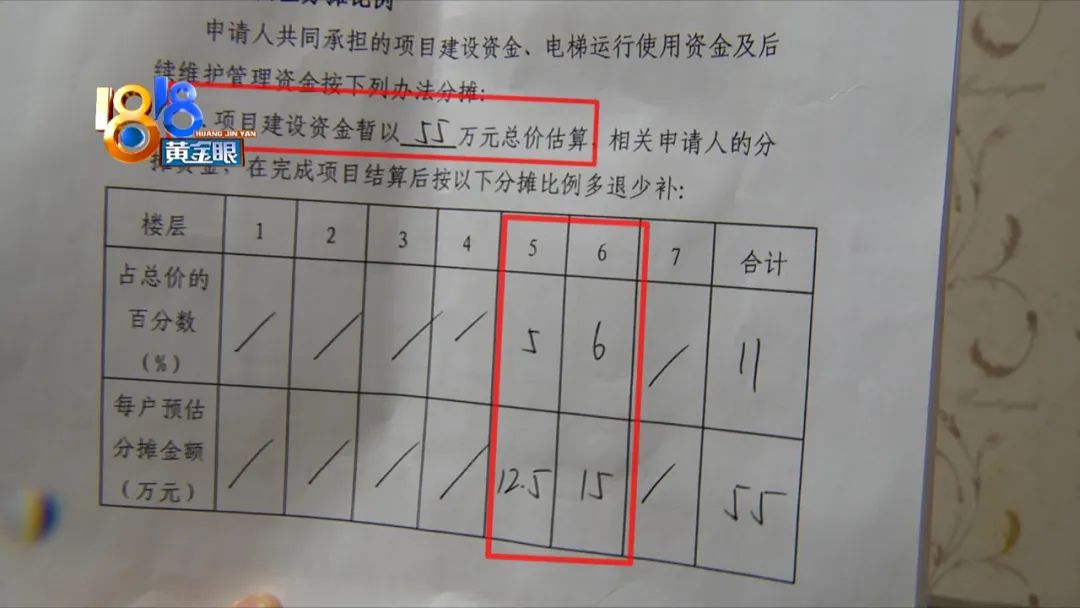 申请人共同承担的项目建设资金、电梯运行使用资金及后
续维护管理资金按下列办法分摊:
1818
HUANG JIN YAN
黄金眼
项目建设资金暂以 55 万元总价估算,相关申请人的分
摊资金,在完成项目结算后按以下分摊比例多退少补:
楼层 1 2 3 4 5 6 7 合计
占总价的百分数(%) / / / / 5 6 / 11
每户预估分摊金额(万元) / / / / 12.5 15 / 55